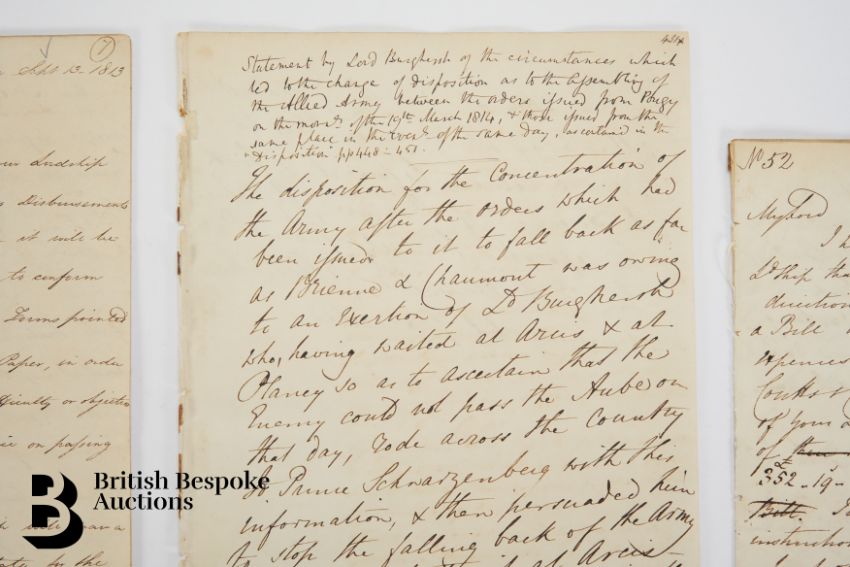 7
Sept 13. 1813
our Lordship
Disbursements
it will be
to conform
Forms pointed
Paper, in order
difficulty or objection
on passing
431*
Statement by Lord Burghersh of the circumstances which
led to the change of disposition as to the assembling of
the Allied Army between the orders issued from Pougy
on the morng of the 19th March 1814, & those issued from the
same place in the Eveng of the same day, as contained in the
Disposition pp 448 - 451.
The disposition for the Concentration of
the Army after the orders which had
been issued to it to fall back as far
as Brienne & Chaumont was owing
to an Exertion of Ld Burghersh
who, having waited at Arcis & at
Plancy so as to ascertain that the
Enemy could not pass the Aube on
that day, rode across the Country
to Prince Schwarzenberg with this
information, & then persuaded him
to stop the falling back of the Army
at Arcis
No 52
My Lord
I h
Ldship tha
direction
a Bill
expences
Coutts &
of your a
of
£
352 - 19 -
Bill
instruction
British Bespoke
Auctions